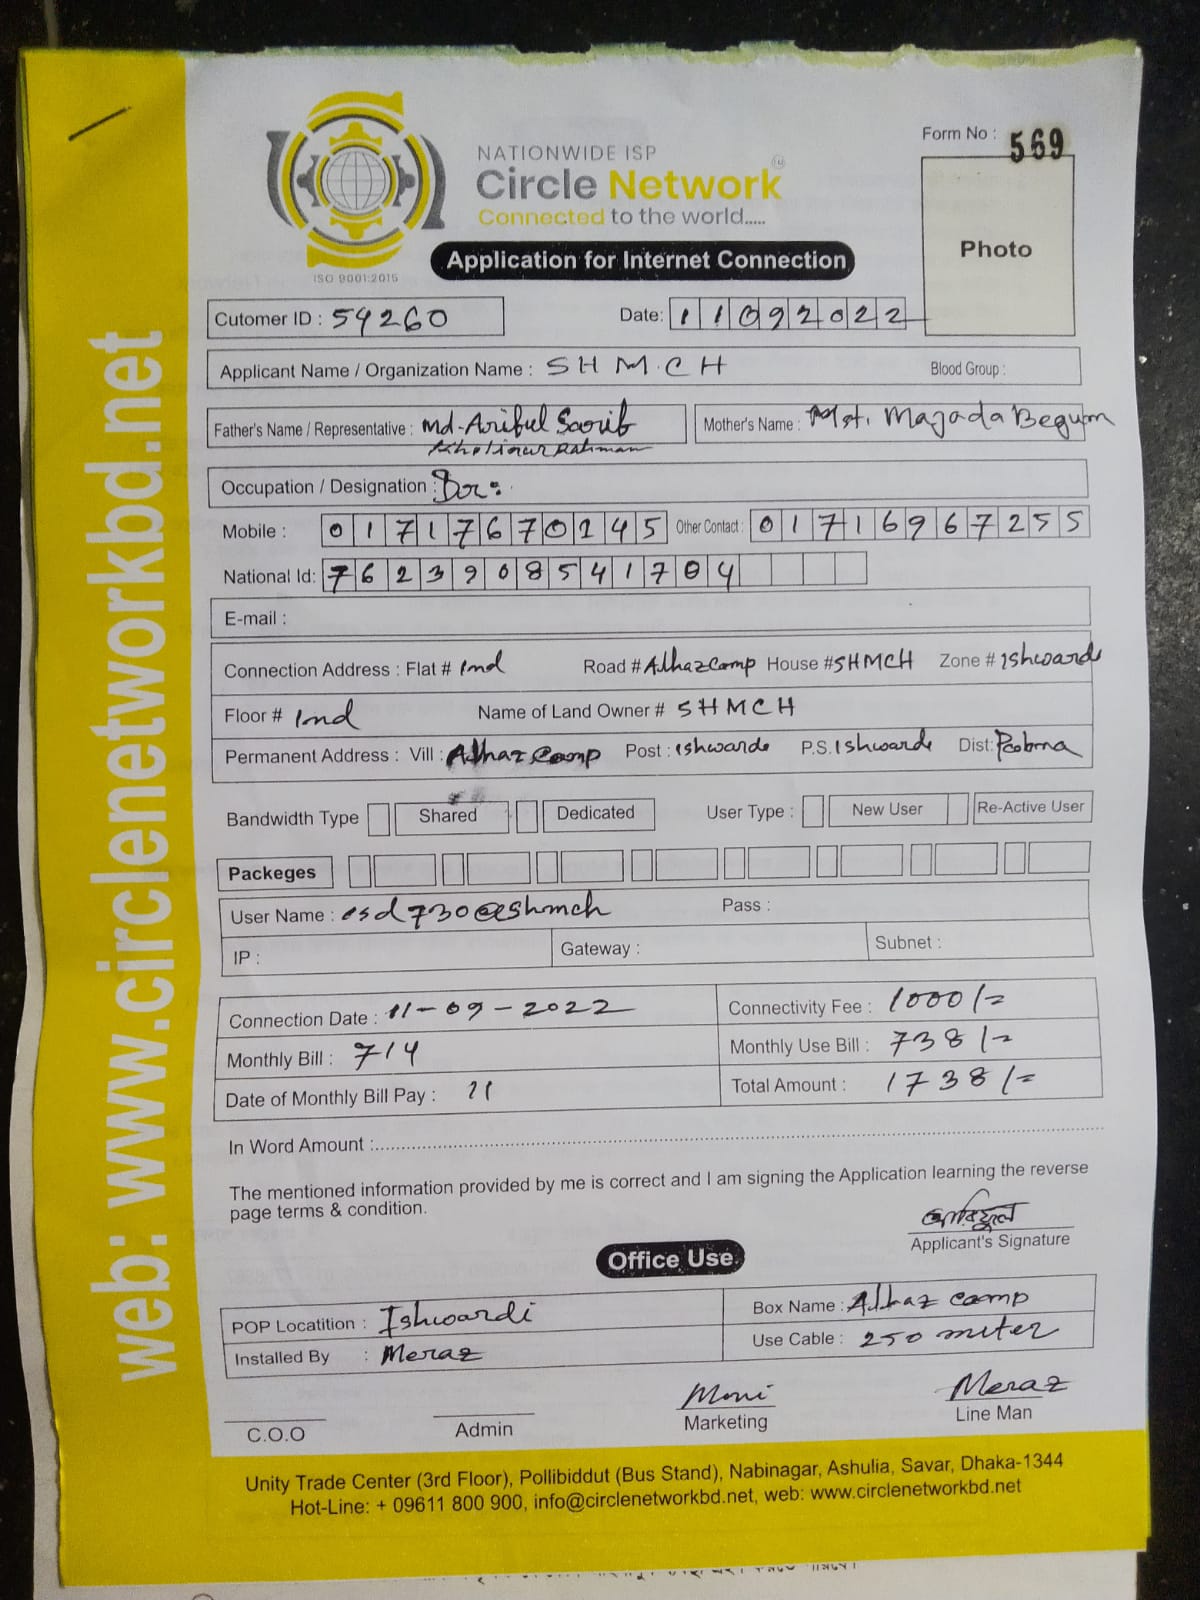 Form No : 569
NATIONWIDE ISP
Circle Network
Connected to the world.....
ISO 9001:2015
Photo
Application for Internet Connection
Cutomer ID : 54260 Date: 11092022
Applicant Name / Organization Name : SHM.CH Blood Group :
Father's Name / Representative : Md-Ariful Sorib Mother's Name : Mst. Majada Begum
Rahman
Occupation / Designation :
Mobile : 01717670245 Other Contact : 01716967255
National Id: 7623908541704
E-mail :
Connection Address : Flat # 1nd Road # Alhaz Camp House # SHMCH Zone # Ishwardi
Floor # 1nd Name of Land Owner # SHMCH
Permanent Address : Vill : Alhaz Camp Post : Ishwardi P.S. Ishwardi Dist: Pabna
Bandwidth Type Shared Dedicated User Type : New User Re-Active User
Packeges
User Name : esd730@shmch Pass :
IP : Gateway : Subnet :
Connection Date : 11-09-2022 Connectivity Fee : 1000/=
Monthly Bill : 714 Monthly Use Bill : 738/=
Date of Monthly Bill Pay : 11 Total Amount : 1738/=
In Word Amount :
The mentioned information provided by me is correct and I am signing the Application learning the reverse
page terms & condition.
আরিফুল
Applicant's Signature
Office Use
POP Locatition : Ishwardi Box Name : Alhaz camp
Installed By : Meraz Use Cable : 250 meter
Moni Meraz
C.O.O Admin Marketing Line Man
Unity Trade Center (3rd Floor), Pollibiddut (Bus Stand), Nabinagar, Ashulia, Savar, Dhaka-1344
Hot-Line: + 09611 800 900, info@circlenetworkbd.net, web: www.circlenetworkbd.net
web: www.circlenetworkbd.net